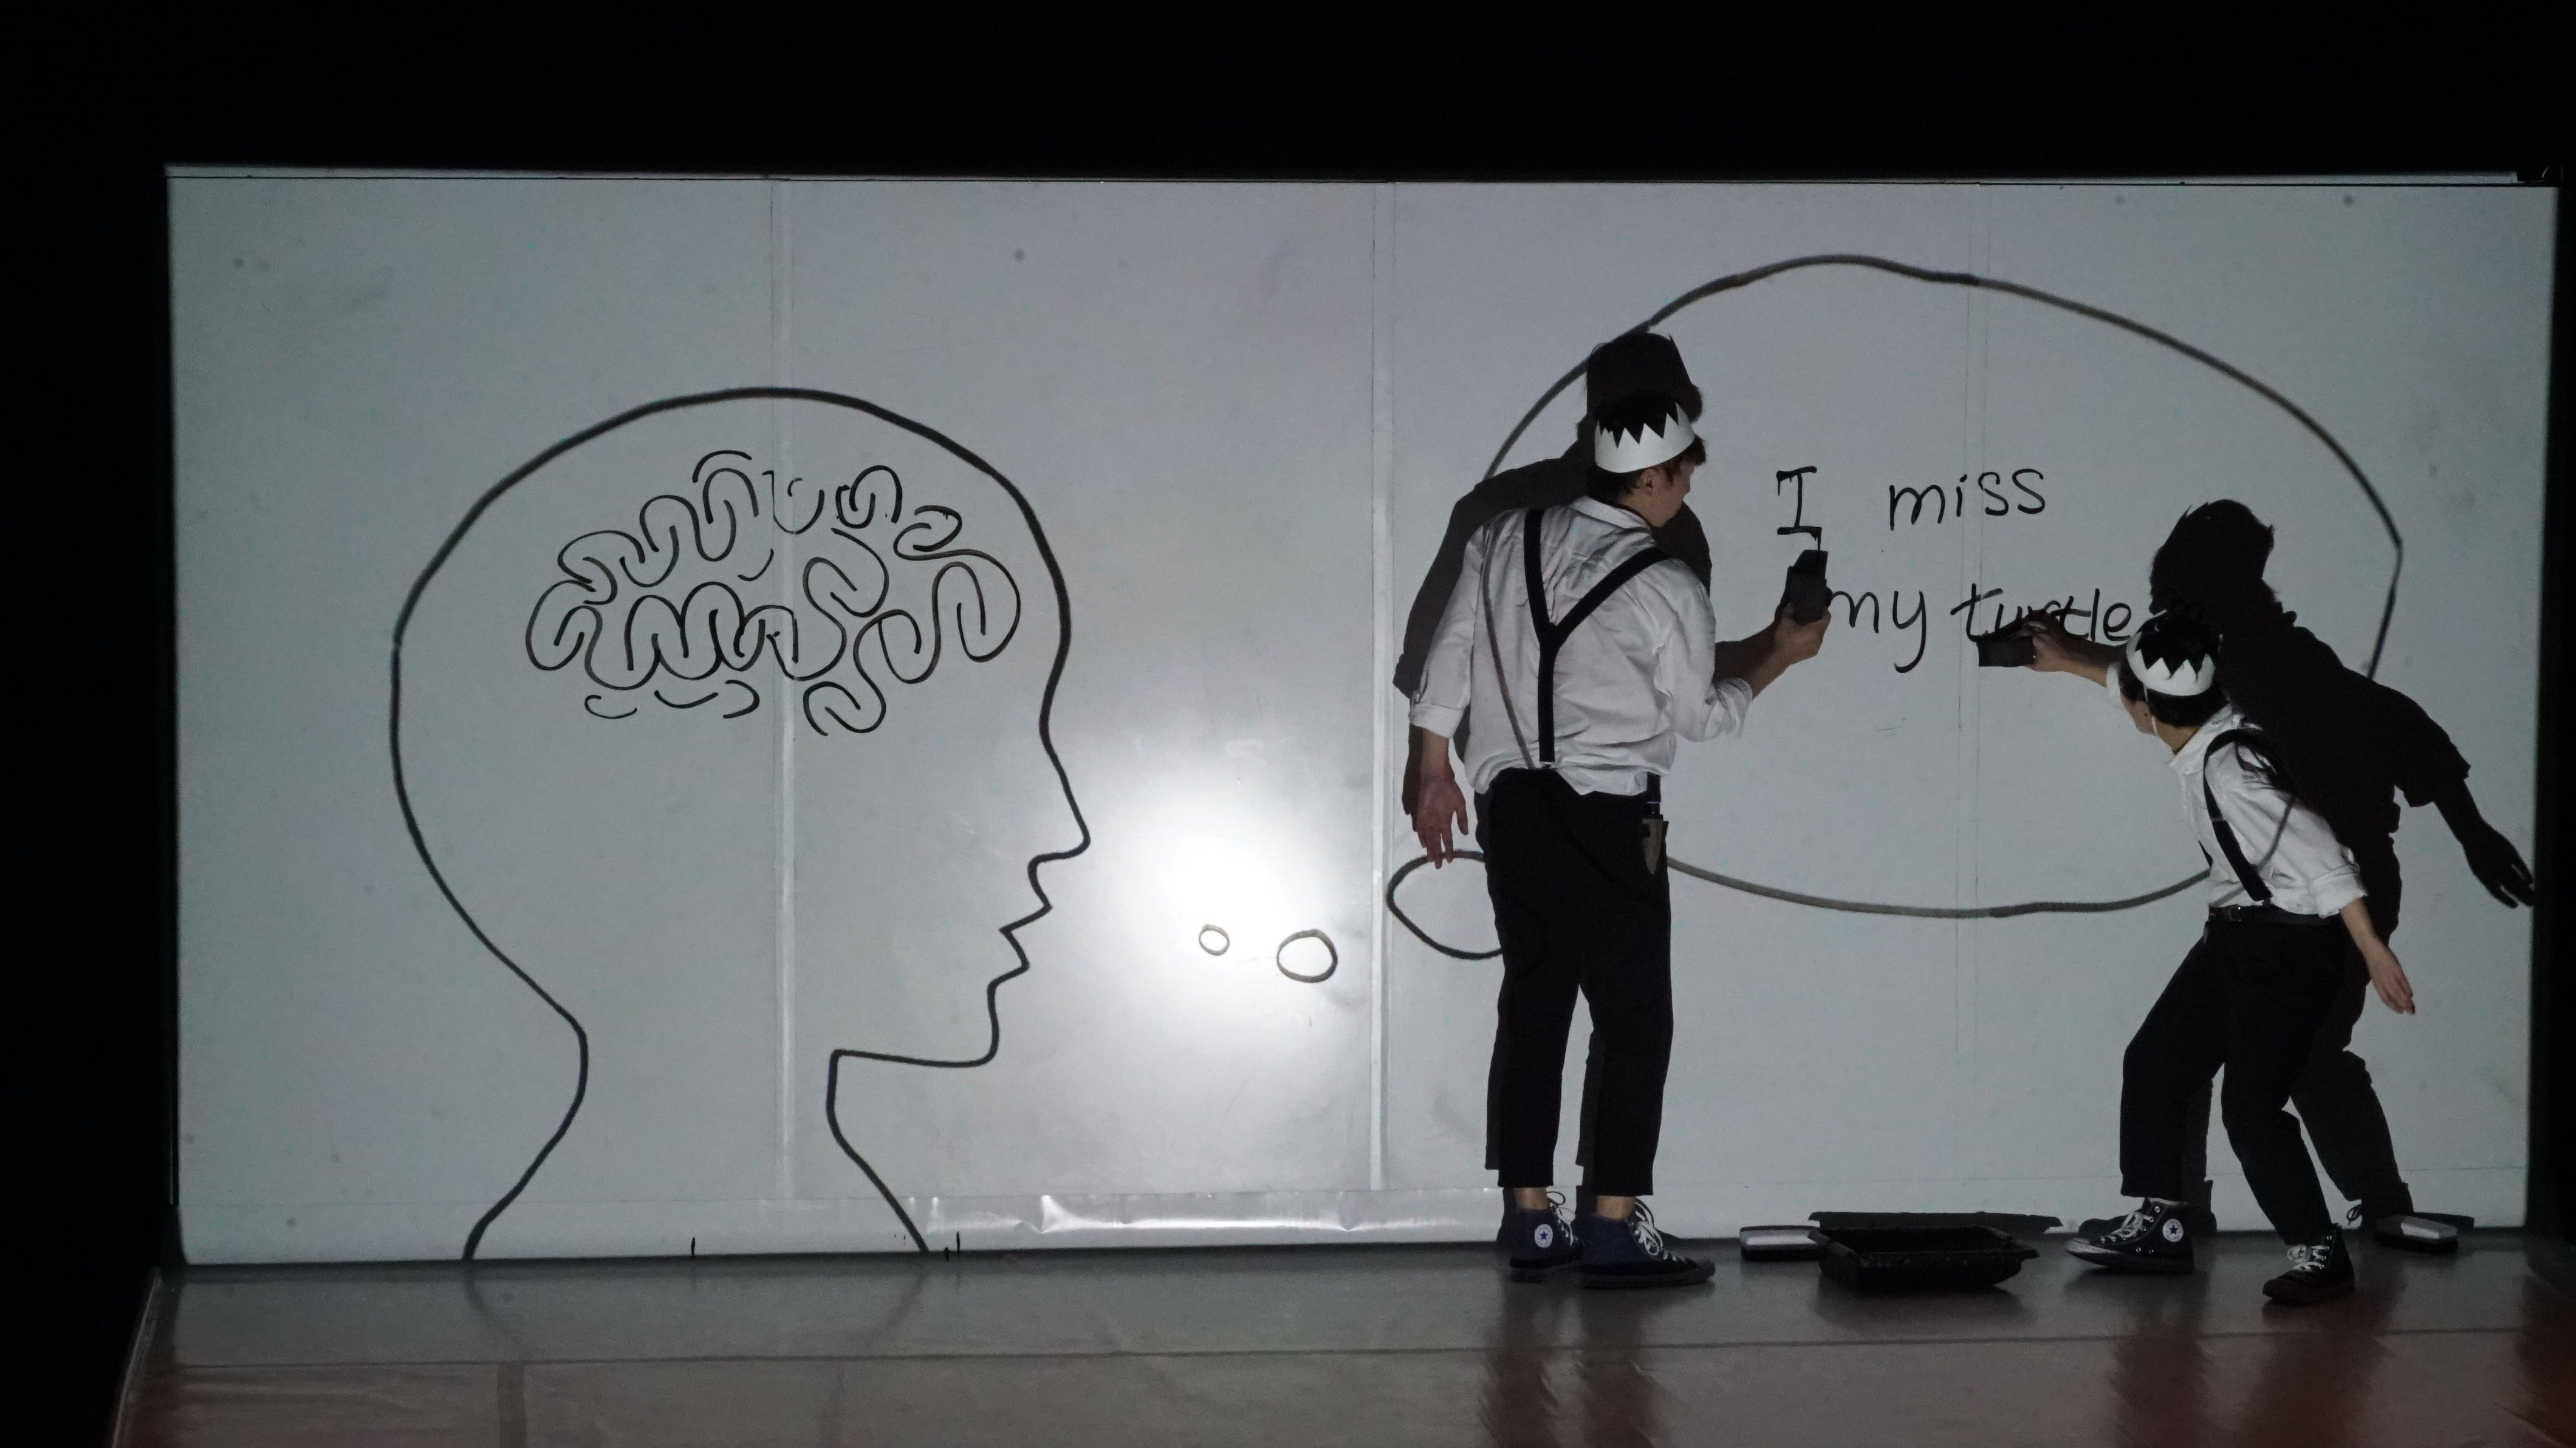 I miss
my turtle